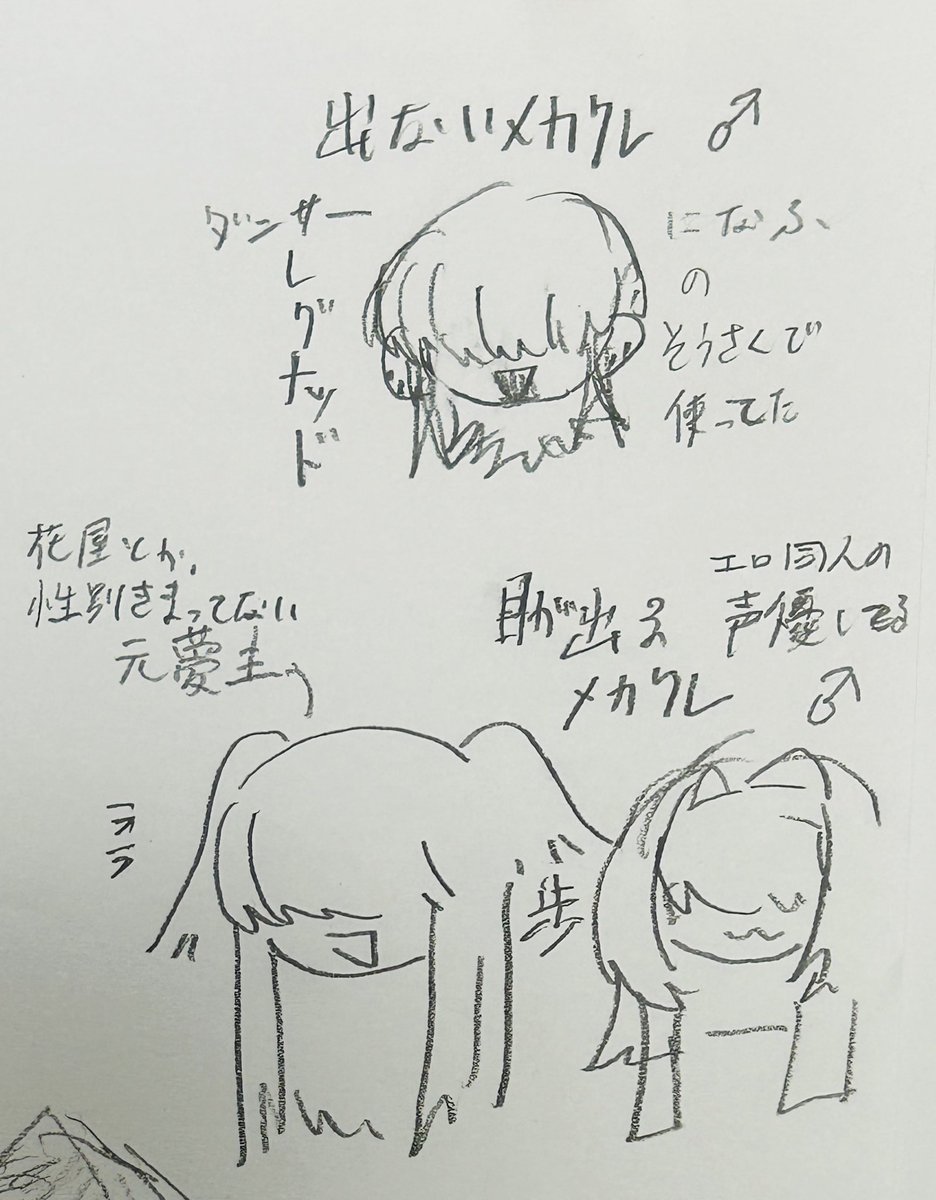 出ないメカクレ ♂
ダンサー
レグナッド
になふ、
の
そうさくで
使ってた
花屋とか、
性別きまってない
元夢主
目が出る
メカクレ ♂
エロ同人の
声優してる
歩